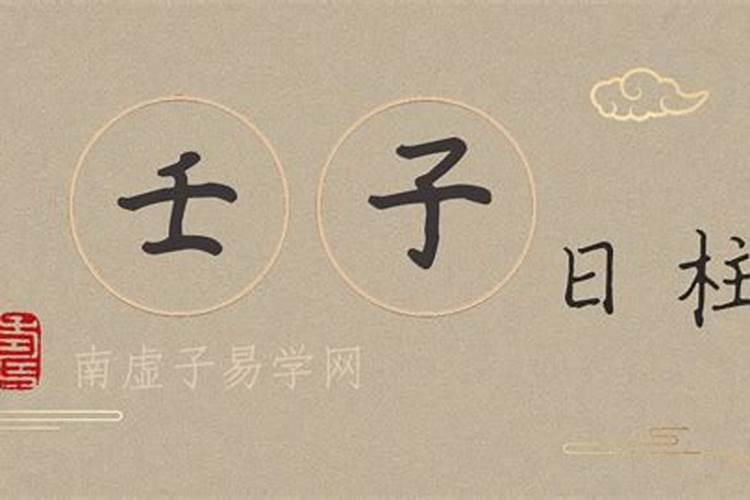 壬子日柱
南虚子易学网